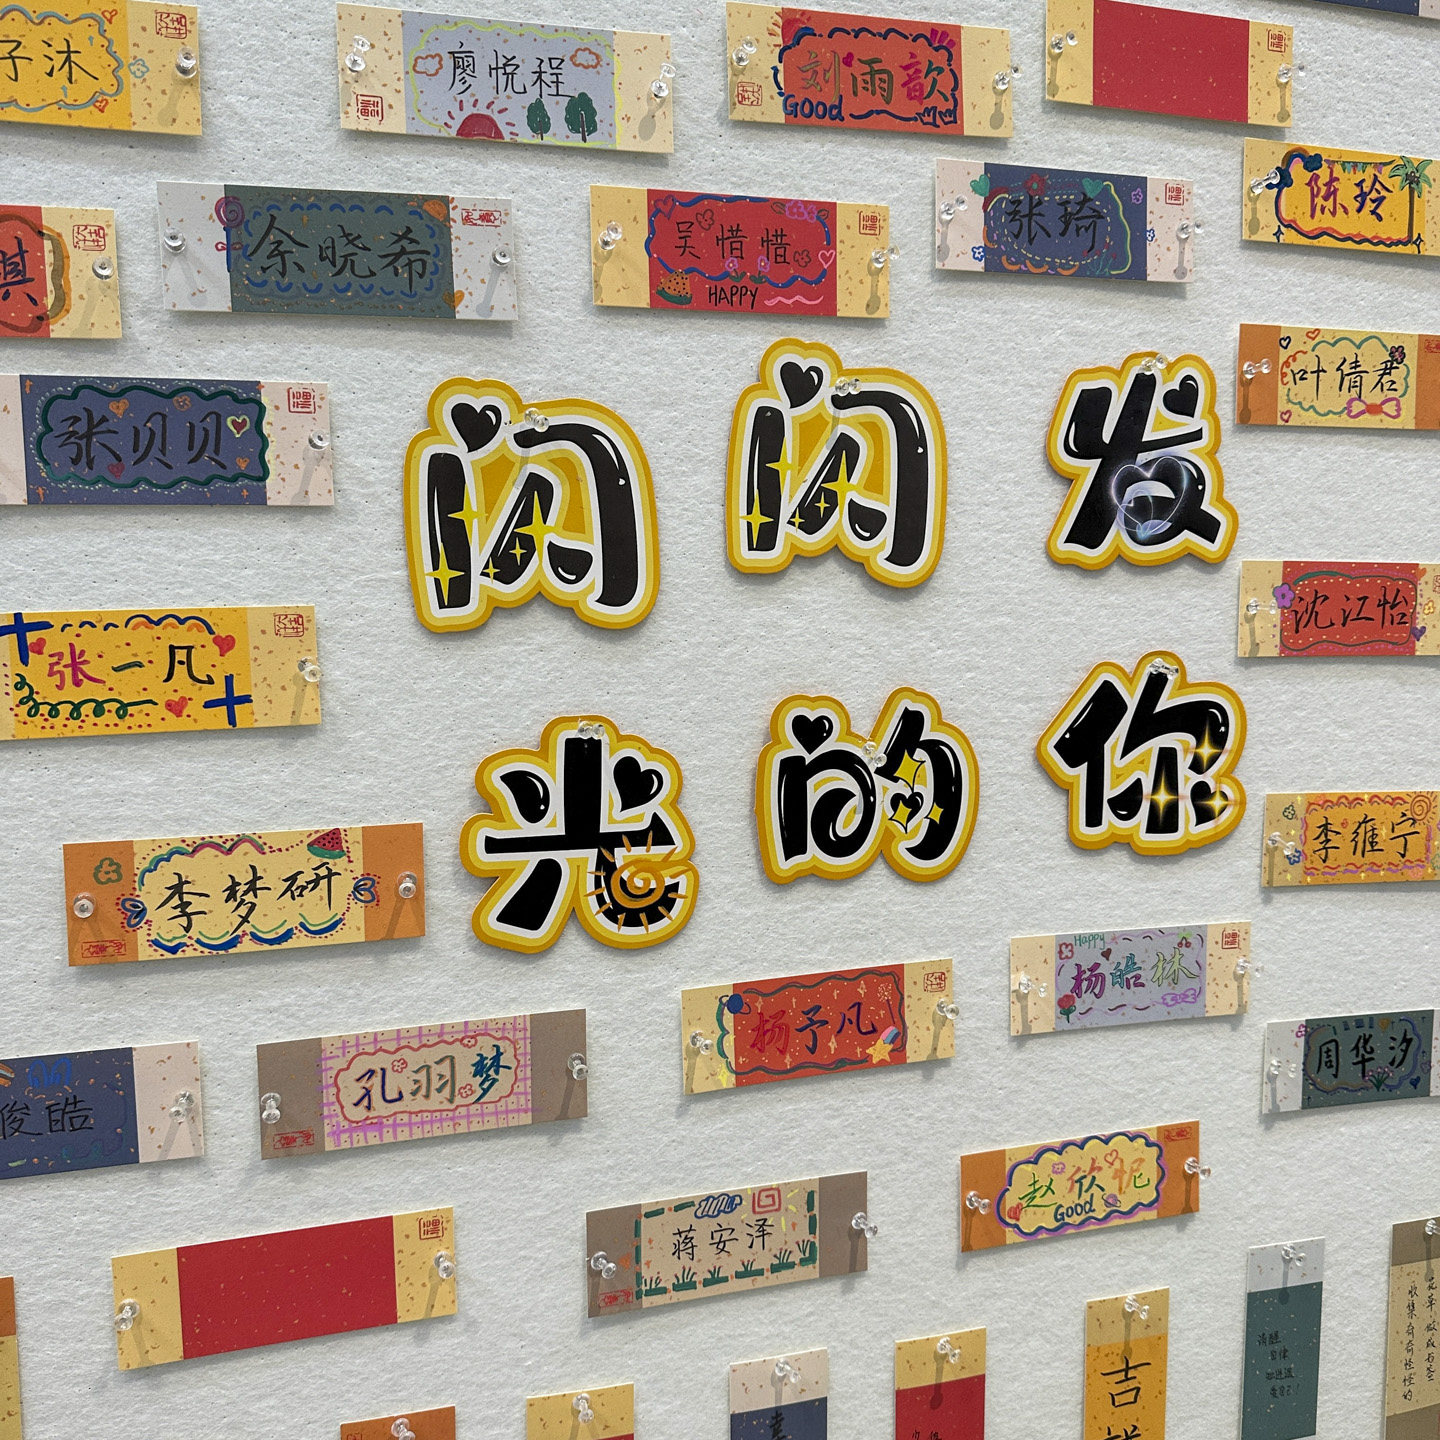 子沐
廖悦程
刘雨歆
Good
余晓希
吴惜惜
HAPPY
张琦
陈玲
叶倩君
张贝贝
闪闪发
光的你
沈江怡
张一凡
李梦研
李雍宁
Happy
杨皓林
杨予凡
孔羽梦
俊皓
周华汐
赵欣妮
Good
蒋安泽
清醒
自律
吉
收集奇奇怪怪的